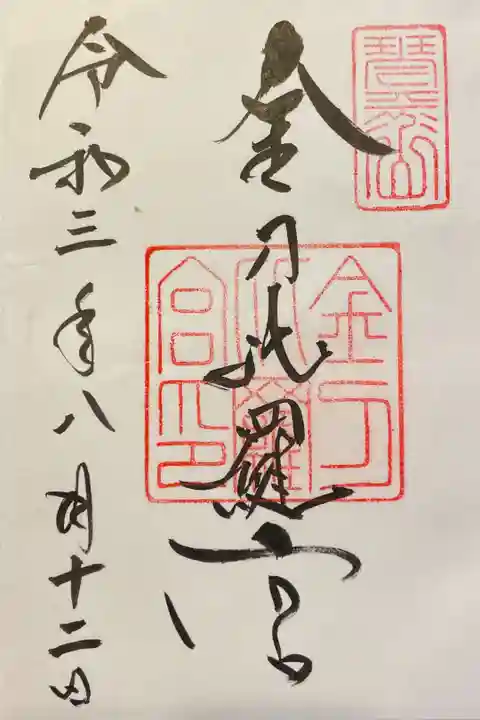 金刀比羅宮
令和三年八月十二日
金刀比羅宮印